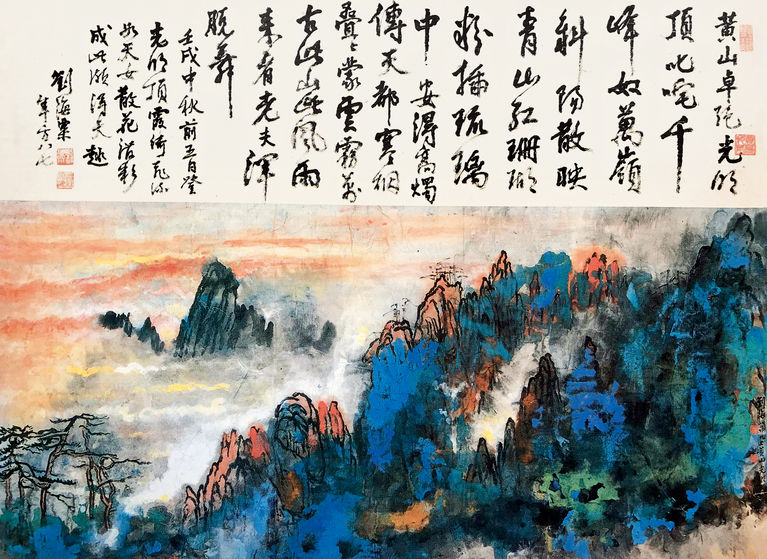 黄山卓絶光明
頂叱咤千
峰奴萬嶺
斜陽散映
青山紅珊瑚
粉播琉璃
中安得高燭
傳天都寒烟
疊疊蒙雲霧萬
古此山此風雨
来者老夫渾
脱
壬戌中秋前五日登
光明頂霞綺飛流
如天女散花浴彩
成此頗得天趣
劉海粟
年方八七